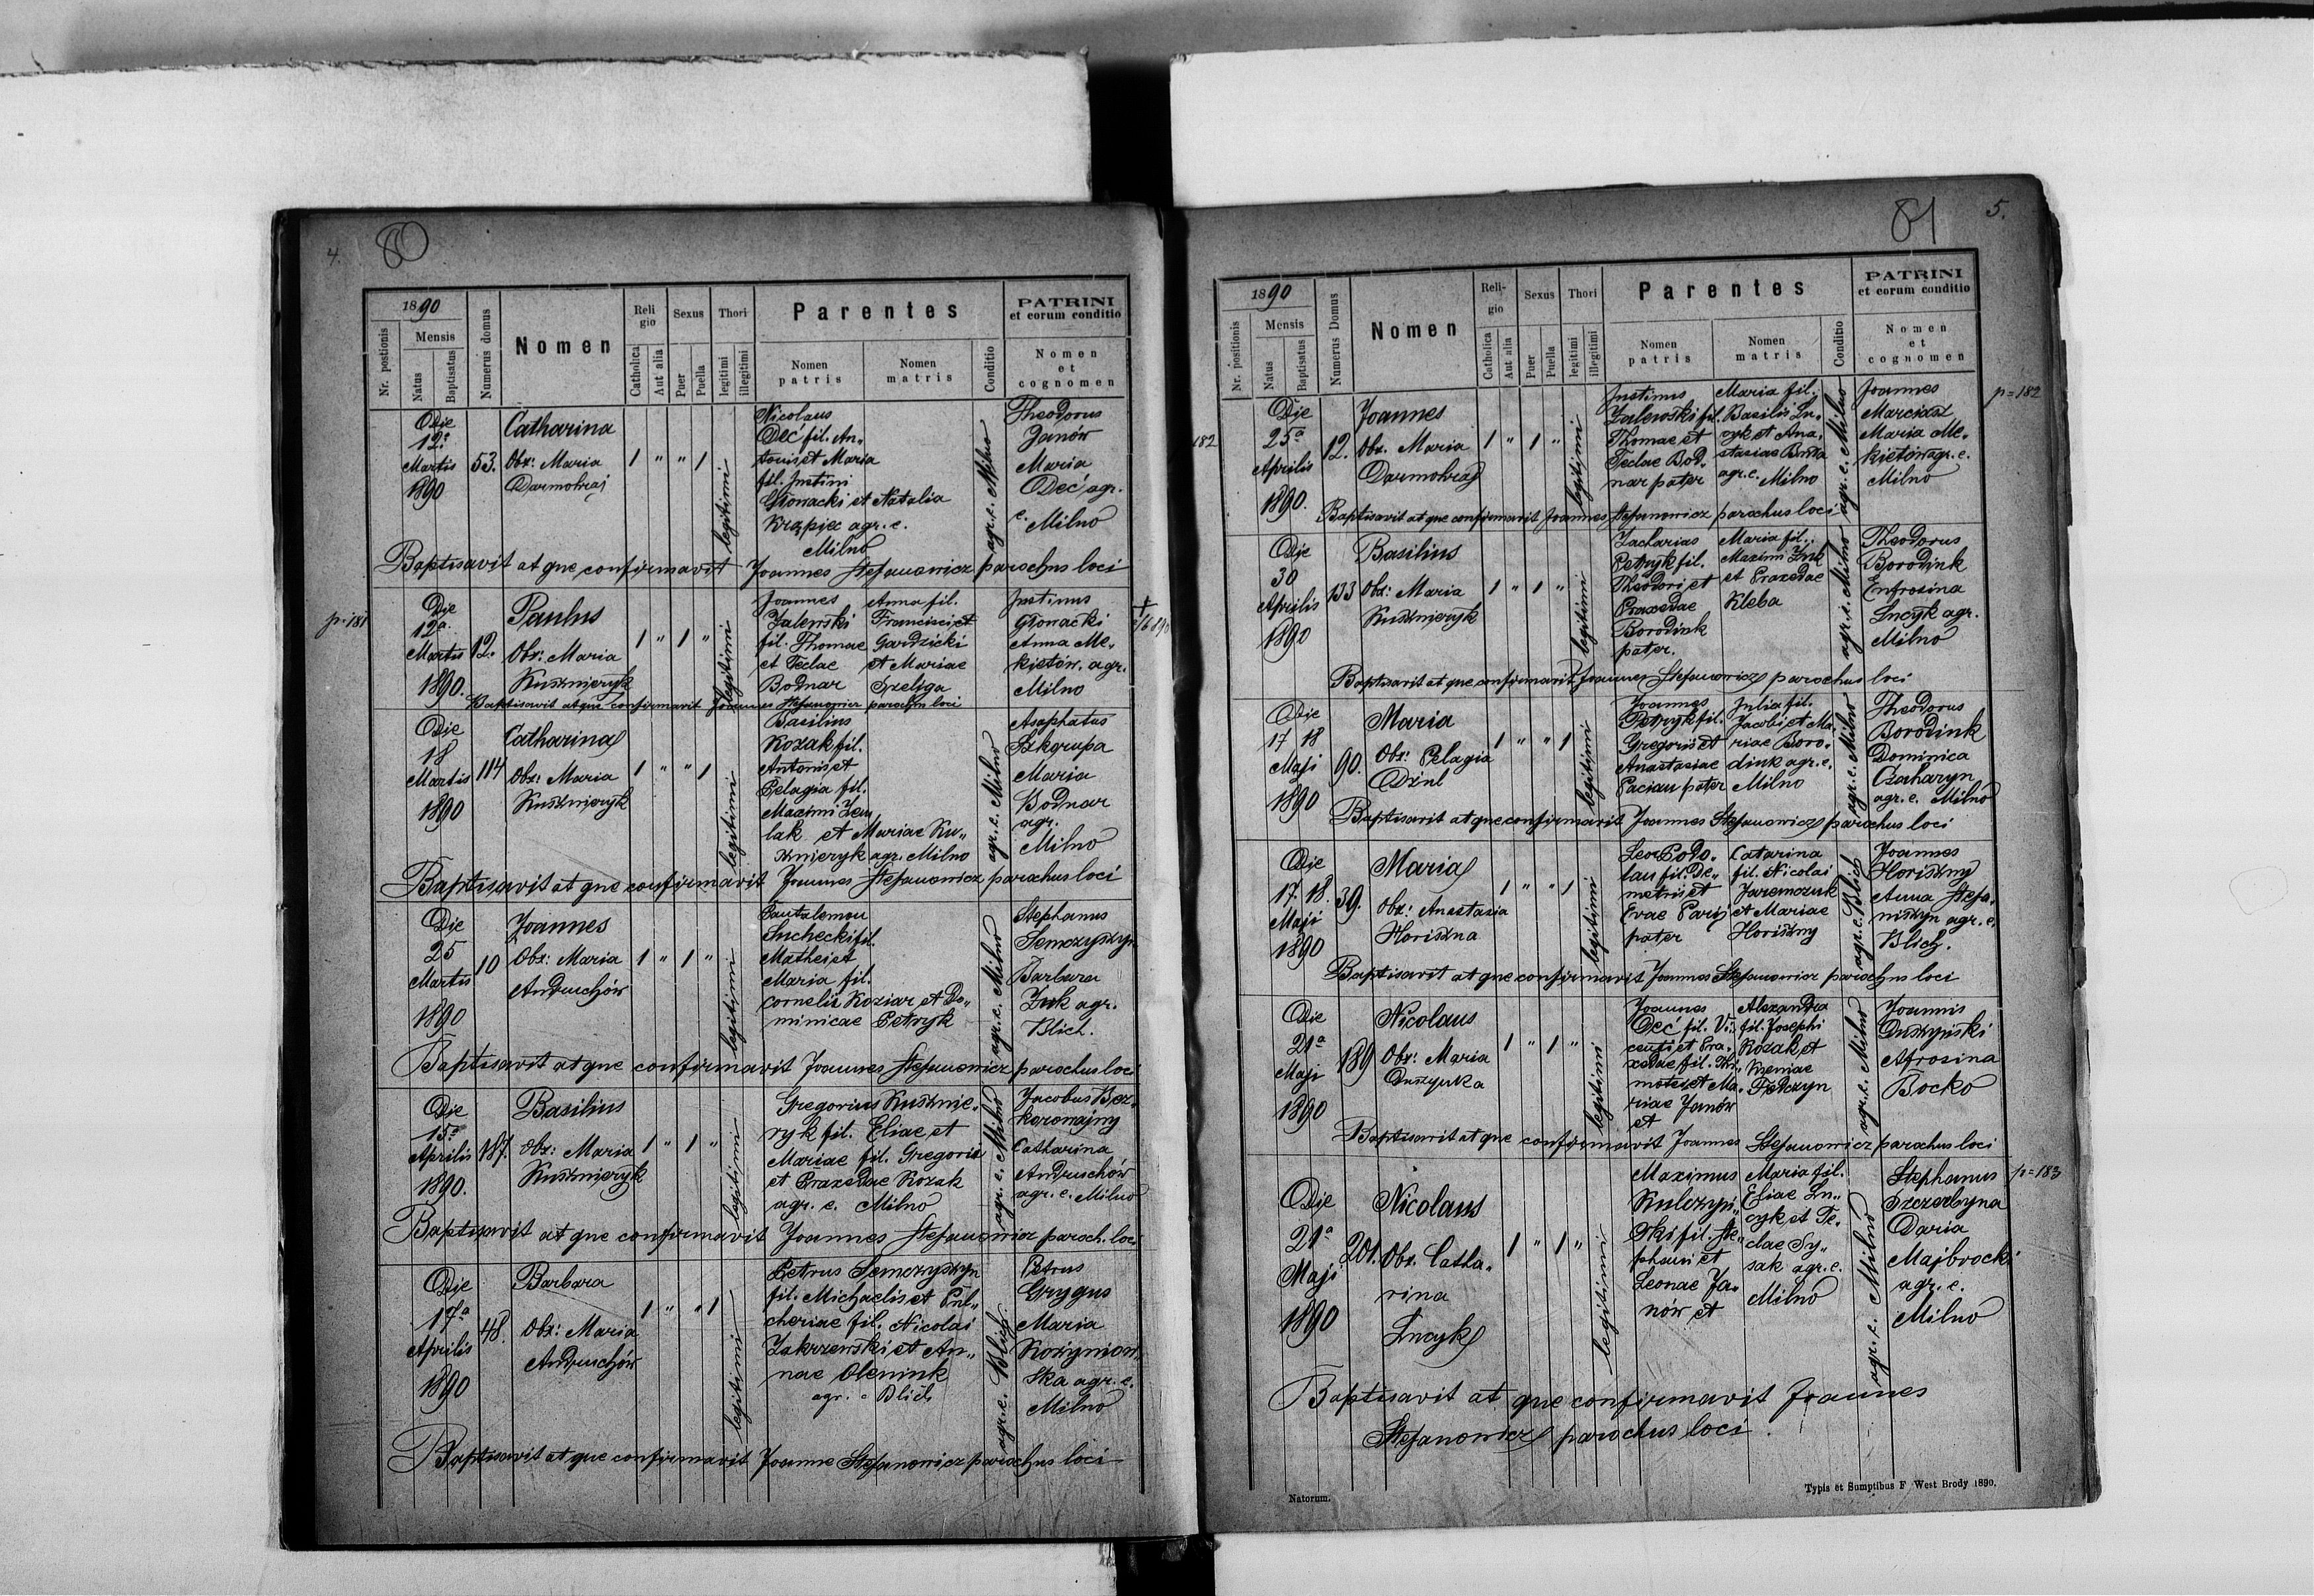 4.
80
1890
Nr. postionis
Mensis
Natus
Baptisatus
Numerus domus
Nomen
Reli
gio
Catholica
Aut alia
Sexus
Puer
Puella
Thori
legitimi
illegitimi
Parentes
Nomen
patris
Nomen
matris
Conditio
PATRINI
et eorum conditio
Nomen
et
cognomen
Die
12ª
Martis
1890
53.
Catharina
Obx: Maria
Darmohraj
1 " " 1
legitimi
Nicolaus
Dec fil. An„
tonis et Maria
fil. Justini
Głowacki et Natalia
Krąpiec agr. c.
Milno
agr. c. Milno
Theodorus
Janów
Maria
Deć, agr.
c. Milno
Baptisavit at que confirmavit Joannes Stefanowicz parochus loci
p. 181
Die
12ª
Martis
1890.
12.
Paulus
Obx: Maria
Kusznieryk
1 " 1 "
legitimi
Joannes Anna fil.
Zalewski Francisci et
fil. Thomae Gardzicki
et Teclae et Mariae
Bodnar Szeliga
Justinus
Głowacki
Anna Me„
kietów. agr.
Milno
Baptisavit atque confirmavit Joannes Stefanowicz parochus loci
Die
18
Martis
1890
114
Catharina
Obx: Maria
Kusznieryk
1 " " 1
legitimi
Basilius
Kozak fil.
Antonis et
Pelagia fil.
Maximi Zen„
lak et Mariae Ku„
sznieryk agr. Milno
agr. c. Milno
Asaphatus
Szkgrupa
Maria
Bodnar
agr.
Milno
Baptisavit at que confirmavit Joannes Stefanowicz parochus loci
Die
25
Martis
1890
10
Joannes
Obx: Maria
Andruchów
1 " 1 "
legitimi
Pantalemon
Suchecki fil.
Mathei et
Maria fil.
Cornelii Koziar et Do„
minicae Petryk
agr. c. Milno
Stephanus
Semczyszyn
Barbara
Zuk agr.
Blich.
Baptisavit at que confirmavit Joannes Stefanowicz parochus loci
Die
15ª
Aprilis
1890.
187.
Basilius
Obx: Maria
Kusznieryk
1 " 1 "
legitimi
Gregorius Kusznie„
ryk fil. Eliae, et
Mariae fil. Gregorii
et Praxedae Kozak
agr. c. Milno
agr. c. Milno
Jacobus Bez„
koronajny
Catharina
Andruchów
agr. c. Milno
Baptisavit at que confirmavit Joannes Stefanowicz paroch. loci
Die
17ª
Aprilis
1890
48.
Barbara
Obx: Maria
Andruchów
1 " " 1
legitimi
Petrus Semczyszyn
fil. Michaelis et Pul„
cheriae fil. Nicolai
Zakrzewski et An„
nae Olenink
agr. c Blich
agr. c. Blich
Petrus
Grygus
Maria
Kozyniow„
ska agr. c.
Milno
Baptisavit at que confirmavit Joanne Stefanowicz parochus loci
81
5.
1890
Nr. positionis
Mensis
Natus
Baptisatus
Numerus Domus
Nomen
Reli-
gio
Catholica
Aut alia
Sexus
Puer
Puella
Thori
legitimi
illegitimi
Parentes
Nomen
patris
Nomen
matris
Conditio
PATRINI
et eorum conditio
Nomen
et
cognomen
182
Die
25ª
Aprilis
1890.
12.
Joannes
Obx. Maria
Darmohraj
1 " 1 "
legitimi
Justinus Maria fil.
Zalewski fil. Basilis Łu„
Thomae et cyk et Ana„
Teclae Bod„ stasiae Buta
nar pater agr. c. Milno
agr. c. Milno
Joannes
Marciasz
Maria Me„
kietów agr. c.
Milno
p=182
Baptisavit at que confirmavit Joannes Stefanowicz parochus loci
Die
30
Aprilis
1890
133
Basilius
Obx: Maria
Kusznieryk
1 " 1 "
legitimi
Zacharias Maria fil.
Petryk fil. Maximi Zuk
Theodori et et Praxedae
Praxedae Kleba
Borodink
pater.
agr. c. Milno
Theodorus
Borodink
Enfrosina
Łucyk agr.
Milno
Baptisavit at que confirmavit Joannes Stefanowicz parochus loci
Die
17 18
Maji
1890
90.
Maria
Obx: Pelagia
Dziul
1 " " 1
legitimi
Joannes Julia fil.
Petryk fil. Jacobi et Ma„
Gregoris et riae Boro„
Anastasiae dink agr. c.
Pacian pater Milno
agr. c. Milno
Theodorus
Borodink
Dominica
Czacharyn
agr. c. Milno
Baptisavit at que confirmavit Joannes Stefanowicz parochus loci
Die
17. 18.
Maji
1890
39.
Maria
Obx: Anastasia
Horiszna
1 " " 1
legitimi
Leon Podo„ Catarina
lau fil. De„ fil. Nicolai
metris et Jaremczuk
Evae Parij et Mariae
pater Horiszny
agr. c. Blich
Joannes
Horiszny
Anna Stefa„
niszyn agr. c.
Blich.
Baptisavit at que confirmavit Joannes Stefanowicz parochus loci
Die
21ª
Maji
1890
189
Nicolaus
Obx: Maria
Duszynka
1 " 1 "
legitimi
Joannes Alexandra
Deć fil. Vi„ fil. Josephi
centi et Pra„ Kozak et
xedae fil. Thi„ Xseniae
motei et Ma„ Fedczyn
riae Janów
et
agr. c. Milno
Joannis
Duszyński
Afrosina
Boćko
Baptisavit at que confirmavit Joannes Stefanowicz parochus loci
Die
21ª
Maji
1890
201.
Nicolaus
Obx. Catha„
rina
Łucyk
1 " 1 "
legitimi
Maximus Maria fil.
Kulczyń„ Eliae Łu„
ski fil. Ste„ cyk et Te„
phani et clae Sy„
Leonae Ja„ sak agr. c.
nów et Milno
agr. c. Milno
Stephanus
Szczerbyna
Daria
Majbrocki
agr. c.
Milno
p=183
Baptisavit at que confirmavit Joannes
Stefanowicz parochus loci.
Natorum.
Typis et Sumptibus F West Brody 1890.